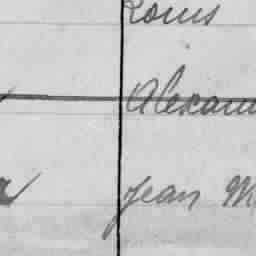 Louis
Alexan
Jean M